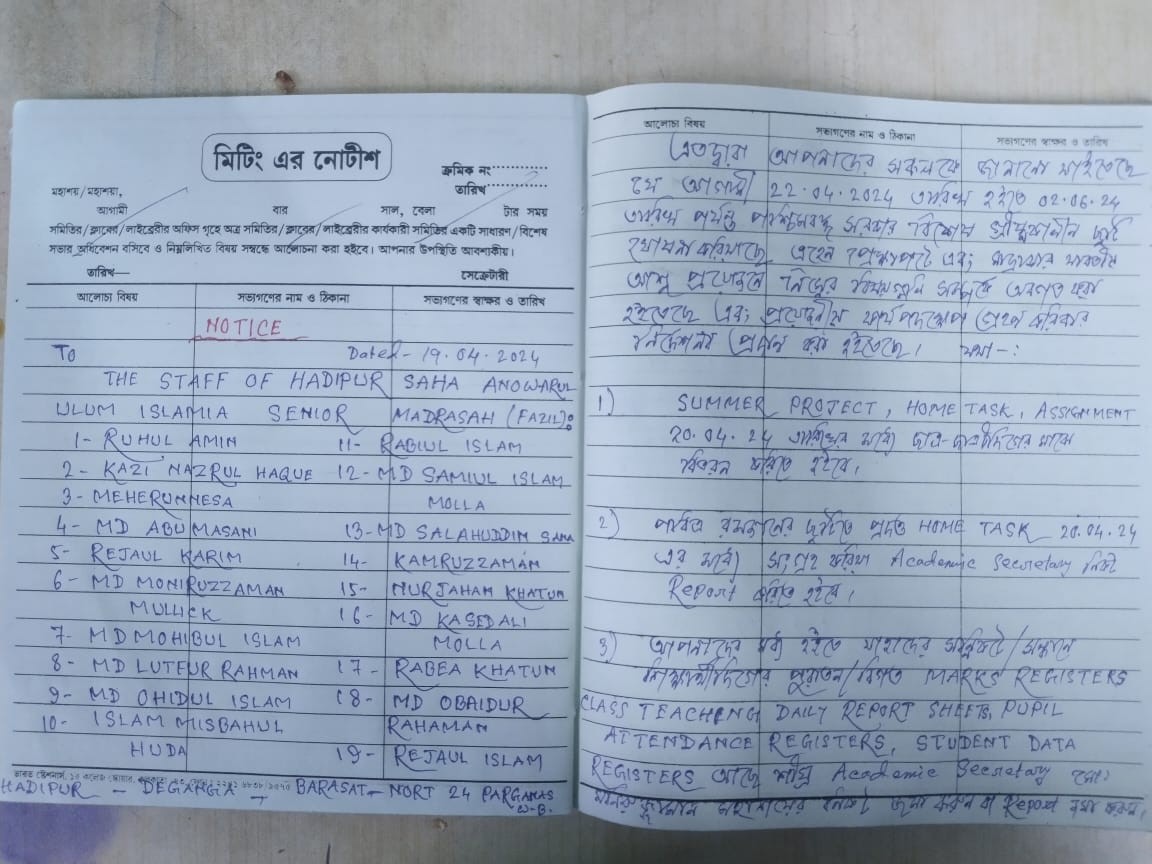 মিটিং এর নোটীশ
ক্রমিক নং
তারিখ
মহাশয়/মহাশয়া,
আগামী বার সাল, বেলা টার সময়
সমিতির/ক্লাবের/লাইব্রেরীর অফিস গৃহে অত্র সমিতির/ক্লাবের/লাইব্রেরীর কার্যকারী সমিতির একটি সাধারণ/বিশেষ
সভার অধিবেশন বসিবে ও নিম্নলিখিত বিষয় সম্বন্ধে আলোচনা করা হইবে। আপনার উপস্থিতি আবশ্যকীয়।
তারিখ— সেক্রেটারী
আলোচ্য বিষয় সভ্যগণের নাম ও ঠিকানা সভ্যগণের স্বাক্ষর ও তারিখ
NOTICE
TO Dated- 19.04.2024
THE STAFF OF HADIPUR SAHA ANOWARUL
ULUM ISLAMIA SENIOR MADRASAH (FAZIL):
1- RUHUL AMIN 11- RABIUL ISLAM
2- KAZI NAZRUL HAQUE 12- MD SAMIUL ISLAM
3- MEHERUNNESA MOLLA
4- MD ABU MASANI 13- MD SALAHUDDIN SANA
5- REJAUL KARIM 14- KAMRUZZAMAN
6- MD MONIRUZZAMAN 15- NURJAHAN KHATUN
MULLICK 16- MD KASED ALI
7- MD MOHIBUL ISLAM MOLLA
8- MD LUTFUR RAHMAN 17- RABEA KHATUN
9- MD OHIDUL ISLAM 18- MD OBAIDUR
10- ISLAM MISBAHUL RAHAMAN
HUDA 19- REJAUL ISLAM
ভারত স্টেশনার্স, ১৫ কলেজ স্কোয়ার,
HADIPUR - DEGANGA - BARASAT- NORT 24 PARGANAS
W-B.
আলোচ্য বিষয় সভ্যগণের নাম ও ঠিকানা সভ্যগণের স্বাক্ষর ও তারিখ
এতদ্বারা আপনাদের সকলকে জানানো যাইতেছে
যে আগামী 22.04.2024 তারিখ হইতে 02.06.24
তারিখ পর্যন্ত পশ্চিমবঙ্গ সরকার বিশেষ গ্রীষ্মকালীন ছুটি
ঘোষনা করিয়াছে এহেন প্রেক্ষাপটে এবং মাদ্রাসার যাবতীয়
আশু প্রয়োজনে নিম্নের বিষয়গুলি সম্পর্কে অবগত করা
হইতেছে এবং প্রয়োজনীয় কার্যপদক্ষেপ গ্রহণ করিবার
নির্দেশনা প্রদান করা হইতেছে। যথা-:
1) SUMMER PROJECT, HOME TASK, ASSIGNMENT
20.04.24 তারিখের মধ্যে ছাত্র-ছাত্রীদিগের মাঝে
বিতরন করিতে হইবে।
2) পবিত্র রমজানের ছুটিতে প্রদত্ত HOME TASK 20.04.24
এর মধ্যে সংগ্রহ করিয়া Academic Secretary নিকট
Report করিতে হইবে।
3) আপনাদের মধ্য হইতে যাহাদের সন্নিকটে/সন্ধানে
শিক্ষার্থীদিগের পুরাতন/বিগত MARKS REGISTERS
CLASS TEACHING DAILY REPORT SHEETS, PUPIL
ATTENDANCE REGISTERS, STUDENT DATA
REGISTERS আছে শীঘ্র Academic Secretary মোঃ
মনিরুজ্জামান মহাশয়ের নিকট জমা করুন বা Report করুন।